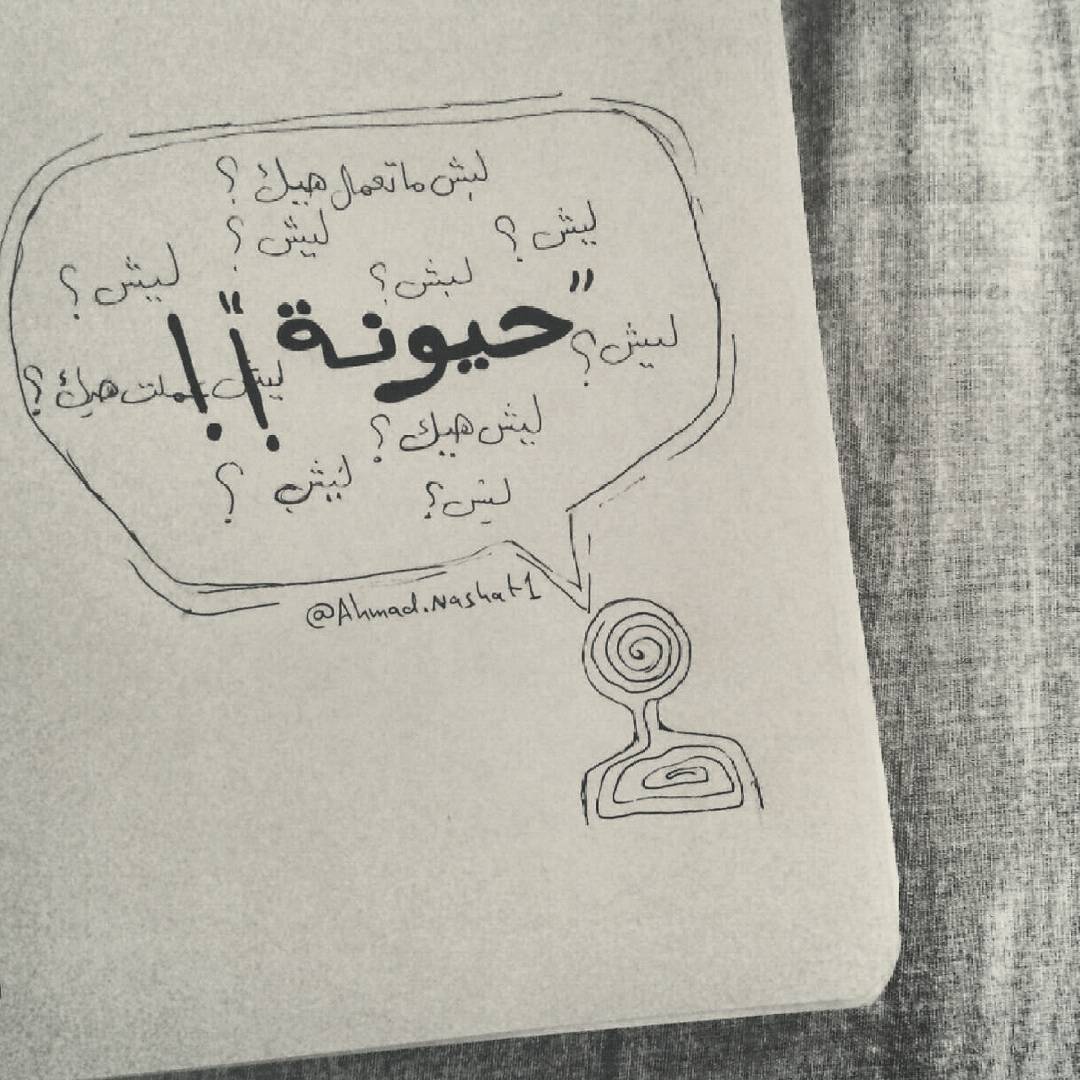 ليش ما تعمل هيك ؟
ليش ؟
ليش ؟
ليش ؟
ليش ؟
"حيونة" !!
ليش ؟
ليش عملت هيك ؟
ليش هيك ؟
ليش ؟
ليش ؟
@Ahmad.Nashat1